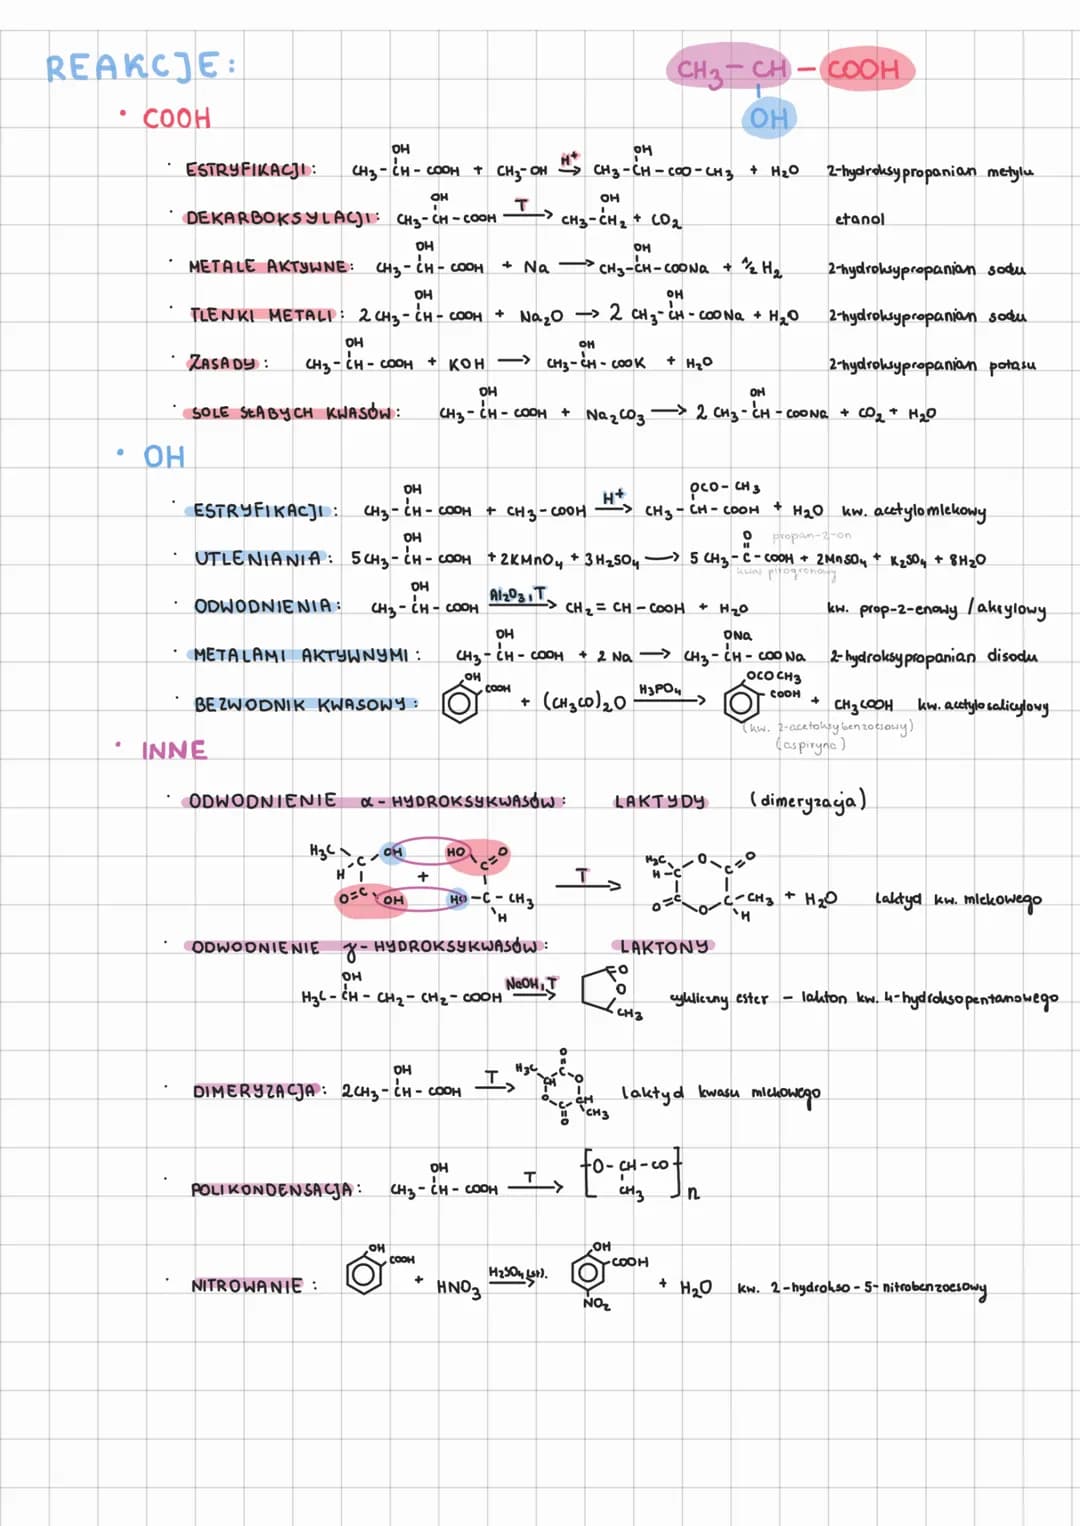 REAKCJE:
CH3 – CH – COOH
OH
• COOH
OH OH
· ESTRYFIKACJI: CH3 – CH – COOH + CH3 – OH H+ → CH3 – CH – COO – CH3 + H2O 2-hydroksypropanian metylu
OH OH
· DEKARBOKSYLACJI: CH3 – CH – COOH T → CH3 – CH2 + CO2 etanol
OH OH
· METALE AKTYWNE: CH3 – CH – COOH + Na → CH3–CH–COONa + ½ H2 2-hydroksypropanian sodu
OH OH
· TLENKI METALI: 2 CH3 – CH – COOH + Na2O → 2 CH3 – CH – COONa + H2O 2-hydroksypropanian sodu
OH OH
· ZASADY: CH3 – CH – COOH + KOH → CH3 – CH – COOK + H2O 2-hydroksypropanian potasu
OH OH
· SOLE SŁABYCH KWASÓW: CH3 – CH – COOH + Na2CO3 → 2 CH3 – CH – COONa + CO2 + H2O
• OH
OH OCO – CH3
· ESTRYFIKACJI: CH3 – CH – COOH + CH3 – COOH H+ → CH3 – CH – COOH + H2O kw. acetylomlekowy
OH O propan-2-on
· UTLENIANIA: 5 CH3 – CH – COOH + 2KMnO4 + 3H2SO4 → 5 CH3 – C – COOH + 2MnSO4 + K2SO4 + 8H2O
kwas pirogronowy
OH
· ODWODNIENIA: CH3 – CH – COOH Al2O3, T → CH2 = CH – COOH + H2O kw. prop-2-enowy / akrylowy
OH ONa
· METALAMI AKTYWNYMI: CH3 – CH – COOH + 2 Na → CH3 – CH – COONa 2-hydroksypropanian disodu
OH OCOCH3
· BEZWODNIK KWASOWY: COOH + (CH3CO)2O H3PO4 → COOH + CH3COOH kw. acetylosalicylowy
(kw. 2-acetoksybenzoesowy)
(aspiryna)
• INNE
· ODWODNIENIE α - HYDROKSYKWASÓW: LAKTYDY (dimeryzacja)
H3C OH HO O H3C O O
C C H – C C
H + T →
O=C OH HO – C – CH3 O=C O C – CH3 + H2O laktyd kw. mlekowego
H H
· ODWODNIENIE γ - HYDROKSYKWASÓW: LAKTONY
OH O
H3C – CH – CH2 – CH2 – COOH NaOH, T → O cykliczny ester – lakton kw. 4-hydroksopentanowego
CH3
OH H3C O
· DIMERYZACJA: 2CH3 – CH – COOH T → CH C O laktyd kwasu mlekowego
O C CH
O CH3
OH
· POLIKONDENSACJA: CH3 – CH – COOH T → [O – CH – CO]n
CH3
OH OH
· NITROWANIE: COOH + HNO3 H2SO4 (st). → COOH + H2O kw. 2-hydrokso-5-nitrobenzoesowy
NO2